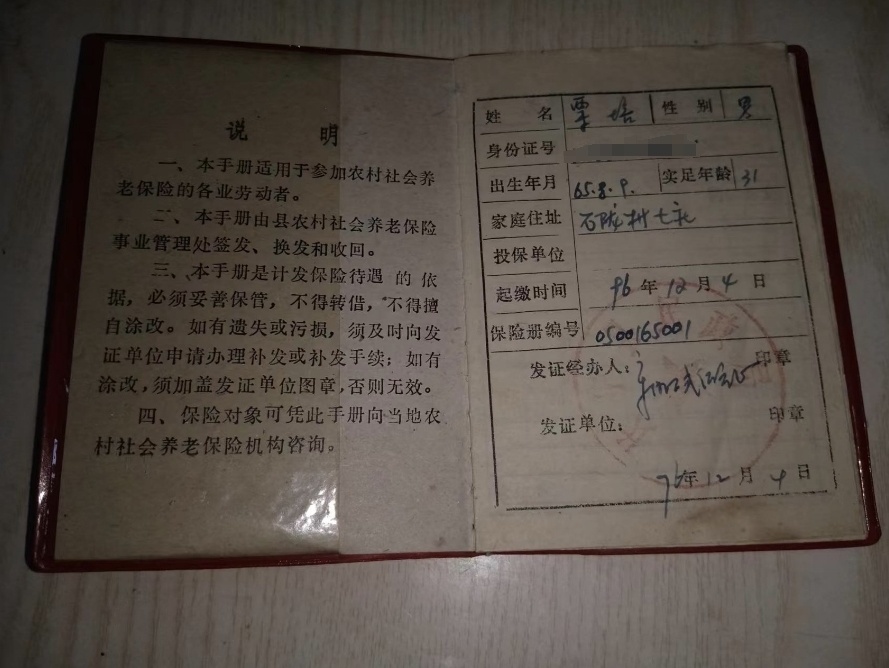 说 明
一、本手册适用于参加农村社会养
老保险的各业劳动者。
二、本手册由县农村社会养老保险
事业管理处签发、换发和收回。
三、本手册是计发保险待遇的依
据，必须妥善保管，不得转借，不得擅
自涂改。如有遗失或污损，须及时向发
证单位申请办理补发或补发手续；如有
涂改，须加盖发证单位图章，否则无效。
四、保险对象可凭此手册向当地农
村社会养老保险机构咨询。
姓 名 性 别 男
身份证号
出生年月 65.8.9. 实足年龄 31
家庭住址 石陇村七
投保单位
起缴时间 96 年 12 月 4 日
保险册编号 0500165001
发证经办人： 印章
发证单位： 印章
96年 12 月 4 日